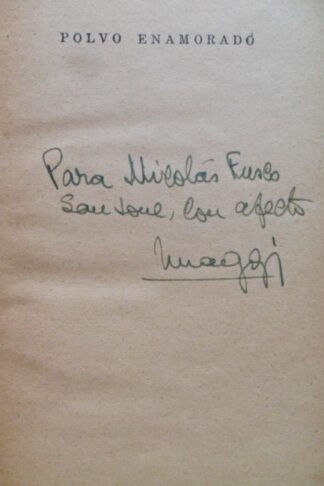 POLVO ENAMORADO
Para Nicolás Fusco
Sansone, con afecto
Maggi